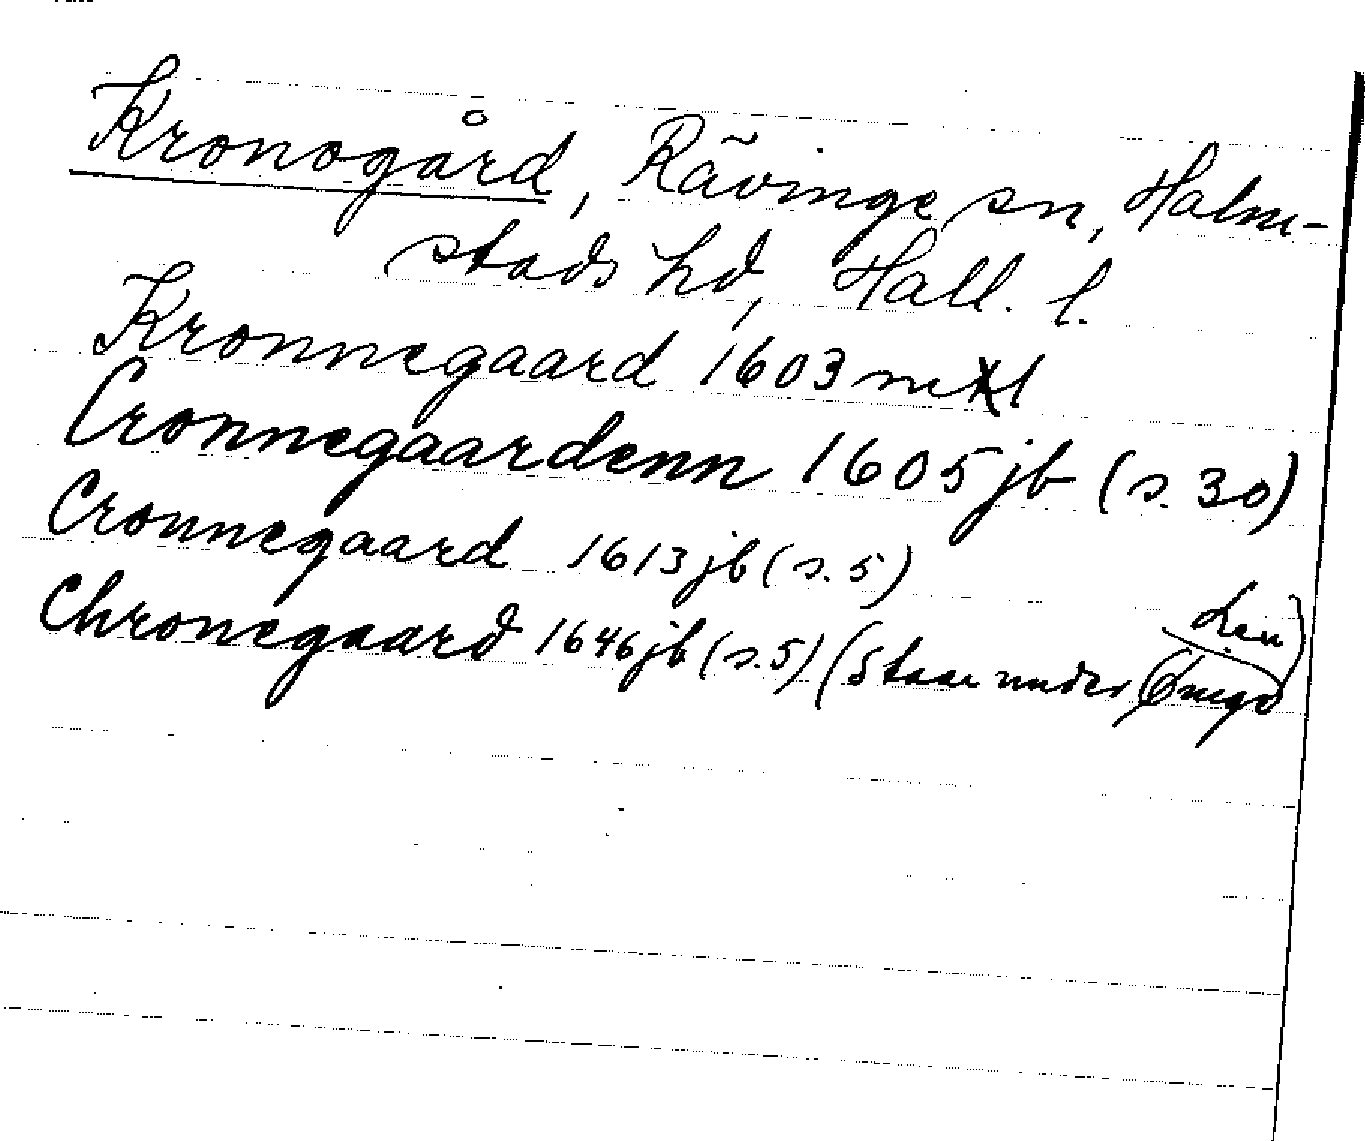 Kronogård, Rävinge sn, Halm-
stads hd, Hall. l.
Kronnegaard 1603 mtl
Cronnegaardenn 1605 jb (s. 30)
Cronnegaard 1613 jb (s. 5)
Chronegaard 1646 jb (s. 5) (Staar under